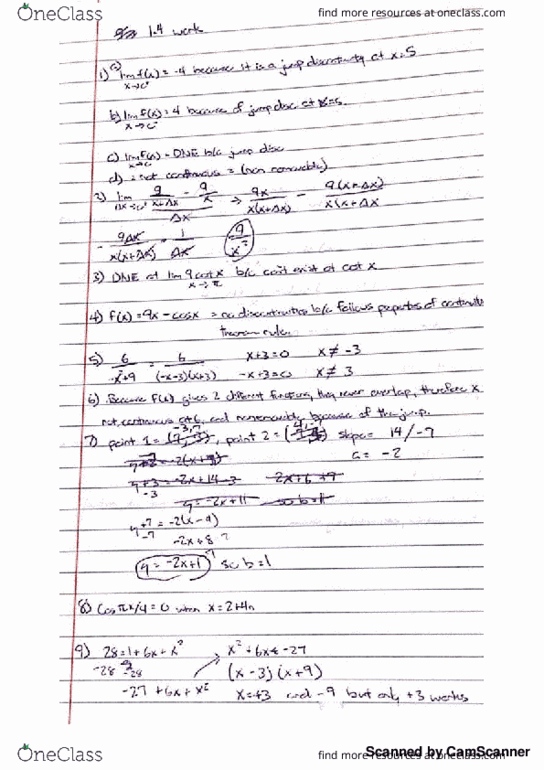 OneClass
find more resources at oneclass.com
1.4 work
1) a) lim f(x) = -4 because it is a jump discontinuity at x=5
b) lim f(x) = 4 because of jump disc. at x=5.
c) lim f(x) = DNE b/c jump disc
d) not continuous = (non removable)
2) lim 9/(x+Δx) - 9/x / Δx ⇒ 9x/x(x+Δx) - 9(x+Δx)/x(x+Δx)
- 9Δx/x(x+Δx) · 1/Δx 9/x²
3) DNE at lim 9cotx b/c can't exist at cot x
x→π
4) f(x) = 9x - cosx = no discontinuities b/c follows properties of continuity
theorem rules
5) 6/-x²+9 = 6/(-x-3)(x+3) x+3=0 x≠-3
-x+3=0 x≠3
6) Because f(x) gives 2 different functions, they never overlap, therefore x
not continuous at 6, and nonremovable because of the jump.
7) point 1 = -3,7 , point 2 = 4,-7 slope = 14/-7
a = -2
y+3 = -2x+14-3 2x+6+9
-3
y = -2x+11 so b=11
y+7 = -2(x-4)
-7
-2x+8
y = -2x+1 so b=1
8) Cos πx/4 = 0 when x = 2+4n
9) 28 = 1+6x+x² x²+6x-27
-28 -28 (x-3)(x+9)
-27+6x+x² x=+3 and -9 but only +3 works
Scanned by CamScanner
OneClass
find more resources at oneclass.com